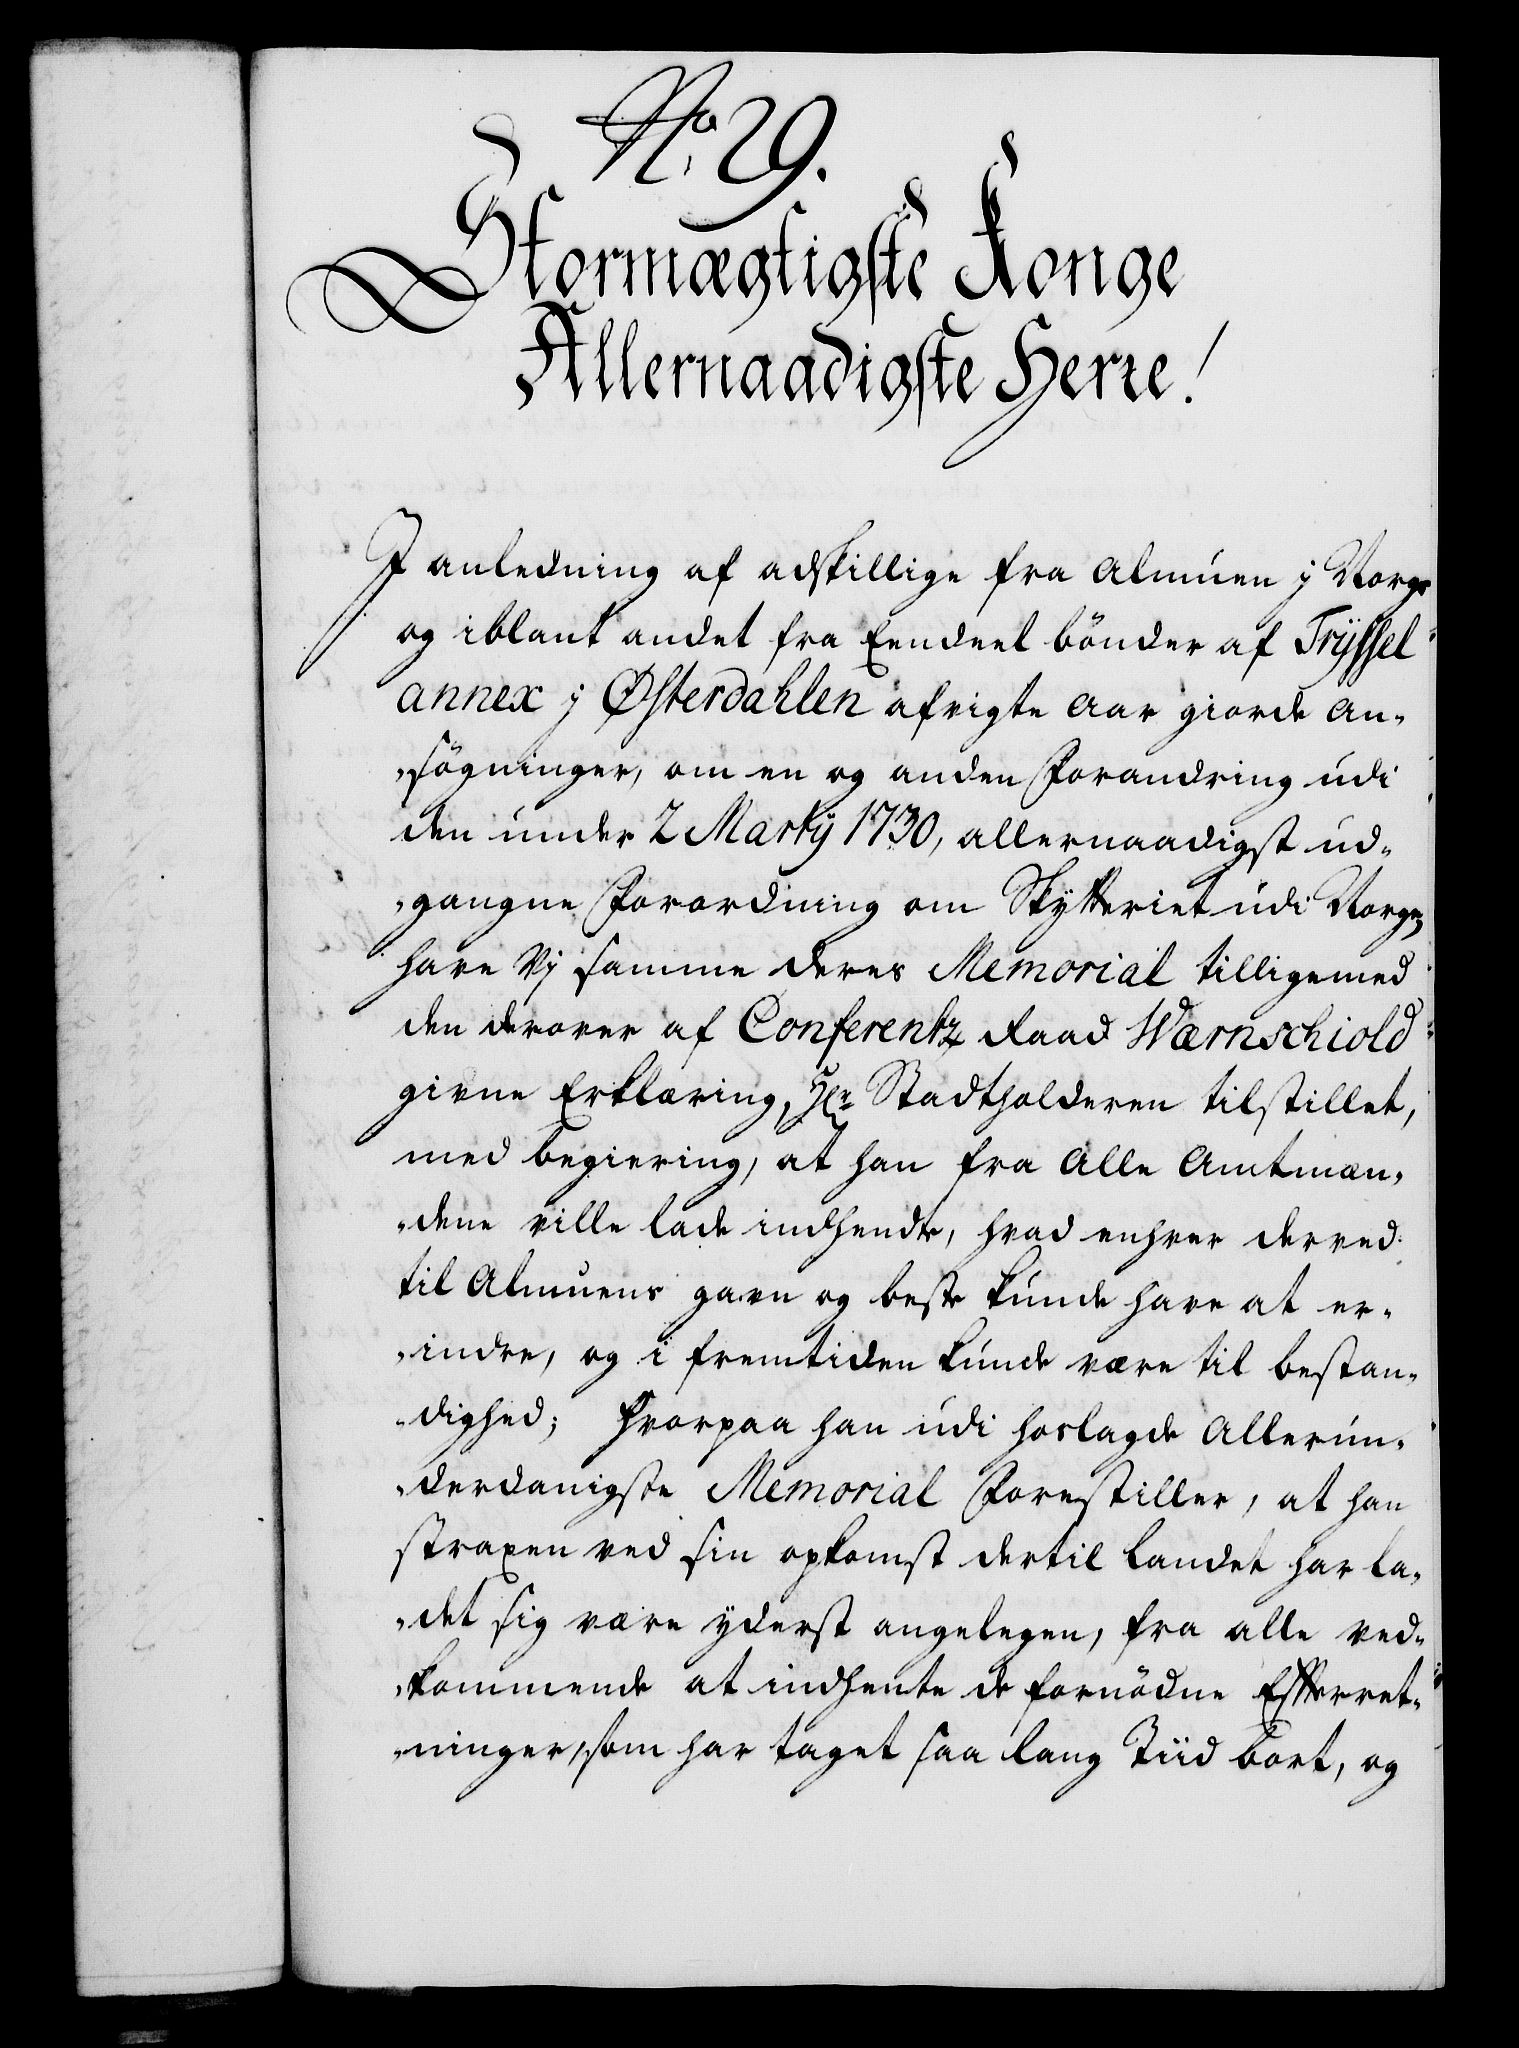 No. 29.
Stormægtigste Konge
Allernaadigste Herre!
I anledning af adskillige fra Almuen j Norge
og iblant andet fra Eendeel bönder af Tryssel
annex j Østerdahlen afvigte Aar giorde An-
-søgninger, om en og anden Forandring udi
den under 2 Martij 1730, allernaadigst ud-
-gangne Forordning om Skytteriet udi Norge,
have Vj samme deres Memorial tilligemed
den derover af Conferentz Raad Wærnschiold
givne Erklæring, Hr Stadtholderen tilstillet,
med begiering, at han fra Alle Amtmæn-
-dene ville lade indhendte, hvad enhver derved
til Almuens gavn og beste kunde have at er-
-indre, og i fremtiden kunde være til bestan-
-dighed; hvorpaa han udi hoslagde Allerun-
-derdanigste Memorial Forestiller, at han
straxen ved sin opkomst dertil Landet har la-
-det sig være yderst angelegen, fra alle ved-
-kommende at indhente de fornödne Efterret-
-ninger, som har taget saa lang Tiid bort, og